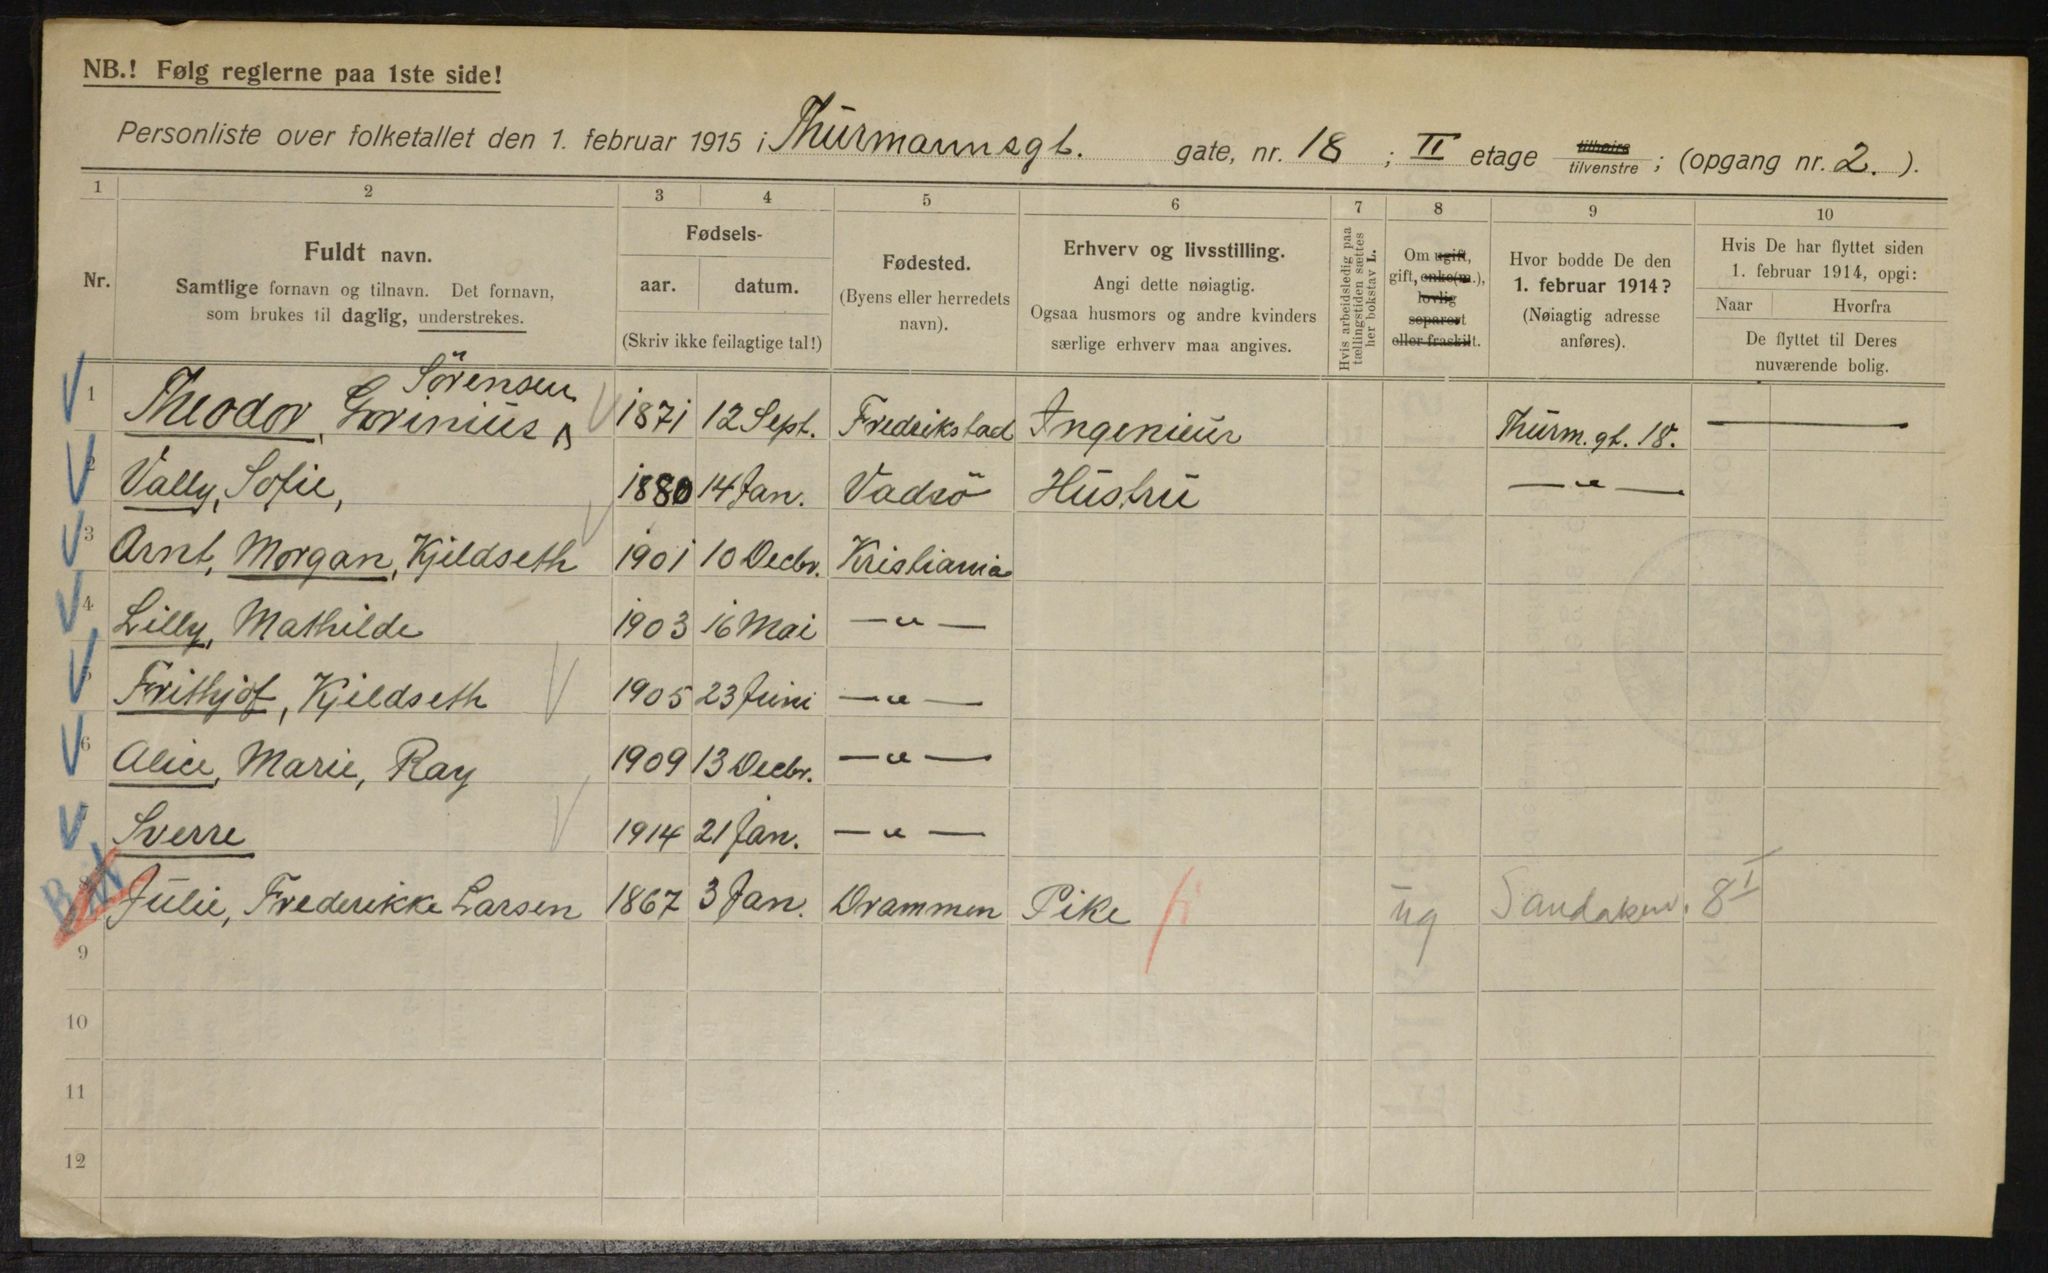 NB.! Følg reglerne paa 1ste side!
Personliste over folketallet den 1. februar 1915 i Thurmannsgt. gate, nr. 18 ; II etage tilhøire tilvenstre ; (opgang nr. 2. ).
1 2 3 4 5 6 7 8 9 10
Nr.
Fuldt navn.
Samtlige fornavn og tilnavn. Det fornavn,
som brukes til daglig, understrekes.
Fødsels-
aar. datum.
(Skriv ikke feilagtige tal!)
Fødested.
(Byens eller herredets
navn).
Erhverv og livsstilling.
Angi dette nøiagtig.
Ogsaa husmors og andre kvinders
særlige erhverv maa angives.
Hvis arbeidsledig paa
tællingstiden sættes
her bokstav L.
Om ugift,
gift, enke(m.),
lovlig
separert
eller fraskilt.
Hvor bodde De den
1. februar 1914?
(Nøiagtig adresse
anføres).
Hvis De har flyttet siden
1. februar 1914, opgi:
Naar Hvorfra
De flyttet til Deres
nuværende bolig.
Sörensen
1 Theodor, Lorinius 1871 12 Sept. Fredrikstad Ingenieur Thurm.gt. 18. —
2 Vally, Sofie, 1880 14 Jan. Vadsö Hustru — " —
3 Arnt, Morgan, Kjeldseth 1901 10 Decbr. Kristiania
4 Lilly, Mathilde 1903 16 Mai — " —
Frithjof, Kjeldseth 1905 23 Juni — " —
6 Alice, Marie, Ray 1909 13 Decbr. — " —
Sverre 1914 21 Jan. — " —
Julie, Frederikke Larsen 1867 3 Jan. Drammen Pike ug Sandakerv. 8 I
9
10
11
12